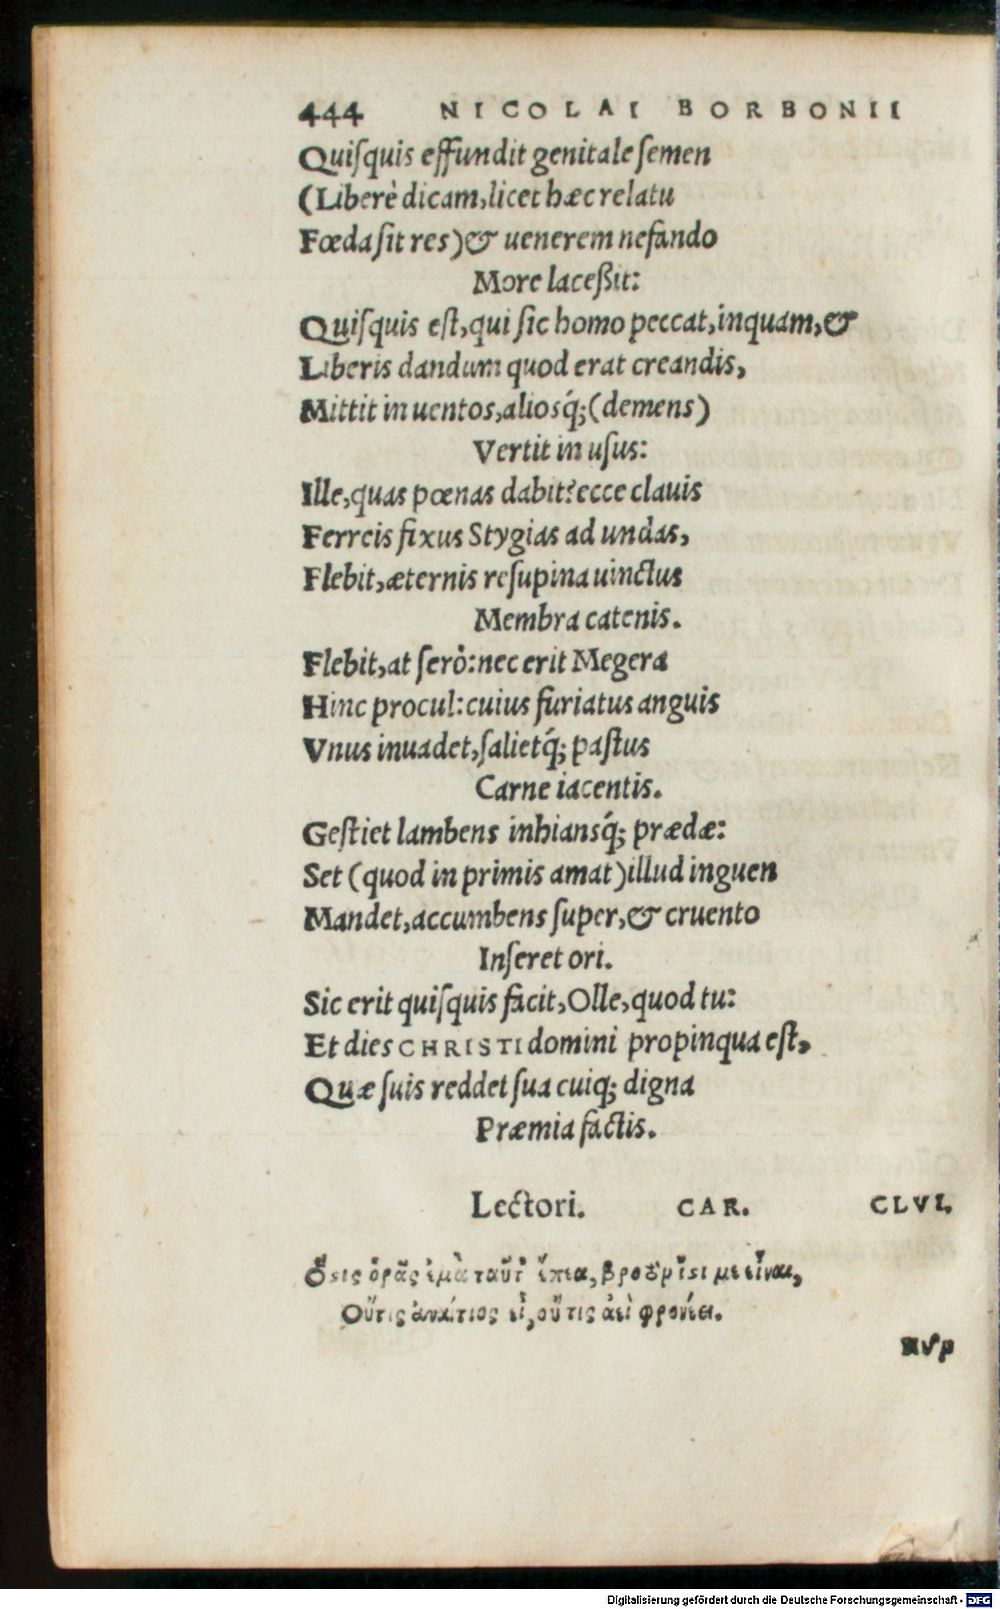 444 NICOLAI BORBONII
Quiſquis effundit genitale ſemen
(Liberè dicam, licet hæc relatu
Fœda ſit res) & uenerem nefando
More laceßit:
Quiſquis eſt, qui ſic homo peccat, inquam, &
Liberis dandum quod erat creandis,
Mittit in uentos, aliosq́; (demens)
Vertit in uſus:
Ille, quas pœnas dabit? ecce clauis
Ferreis fixus Stygias ad undas,
Flebit, æternis reſupina uinctus
Membra catenis.
Flebit, at ſerò: nec erit Megera
Hinc procul: cuius furiatus anguis
Vnus inuadet, ſalietq́; paſtus
Carne iacentis.
Geſtiet lambens inhiansq́; prædæ:
Set (quod in primis amat) illud inguen
Mandet, accumbens ſuper, & cruento
Inſeret ori.
Sic erit quiſquis facit, Olle, quod tu:
Et dies CHRISTI domini propinqua eſt,
Quæ ſuis reddet ſua cuiq; digna
Præmia factis.
Lectori. CAR. CLVI.
Ὅςις ὁρᾷς ἐμὰ ταῦτ' ἔπεα, βροτὸν ἴσι με εἶναι,
Οὔτις ἀναίτιος εἶ, οὔτις ἀεὶ φρονέει.
Digitalisierung gefördert durch die Deutsche Forschungsgemeinschaft - DFG